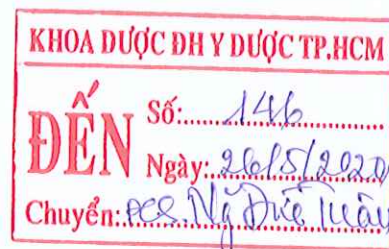 KHOA DƯỢC ĐH Y DƯỢC TP.HCM
ĐẾN
Số: 146
Ngày: 26/5/2020
Chuyển: PGS. Ng Đức Tuấn